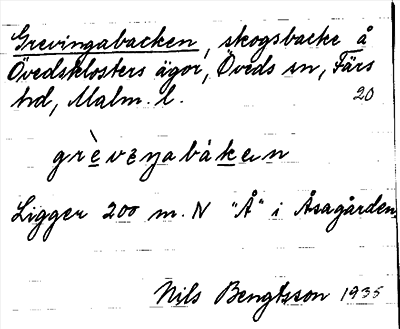 Grevingabacken, skogsbacke å
Övedsklosters ägor, Öveds sn, Färs
hd, Malm. l. 20
grèveŋabàken
Ligger 200 m. N "Å" i Åsagården
Nils Bengtsson 1935